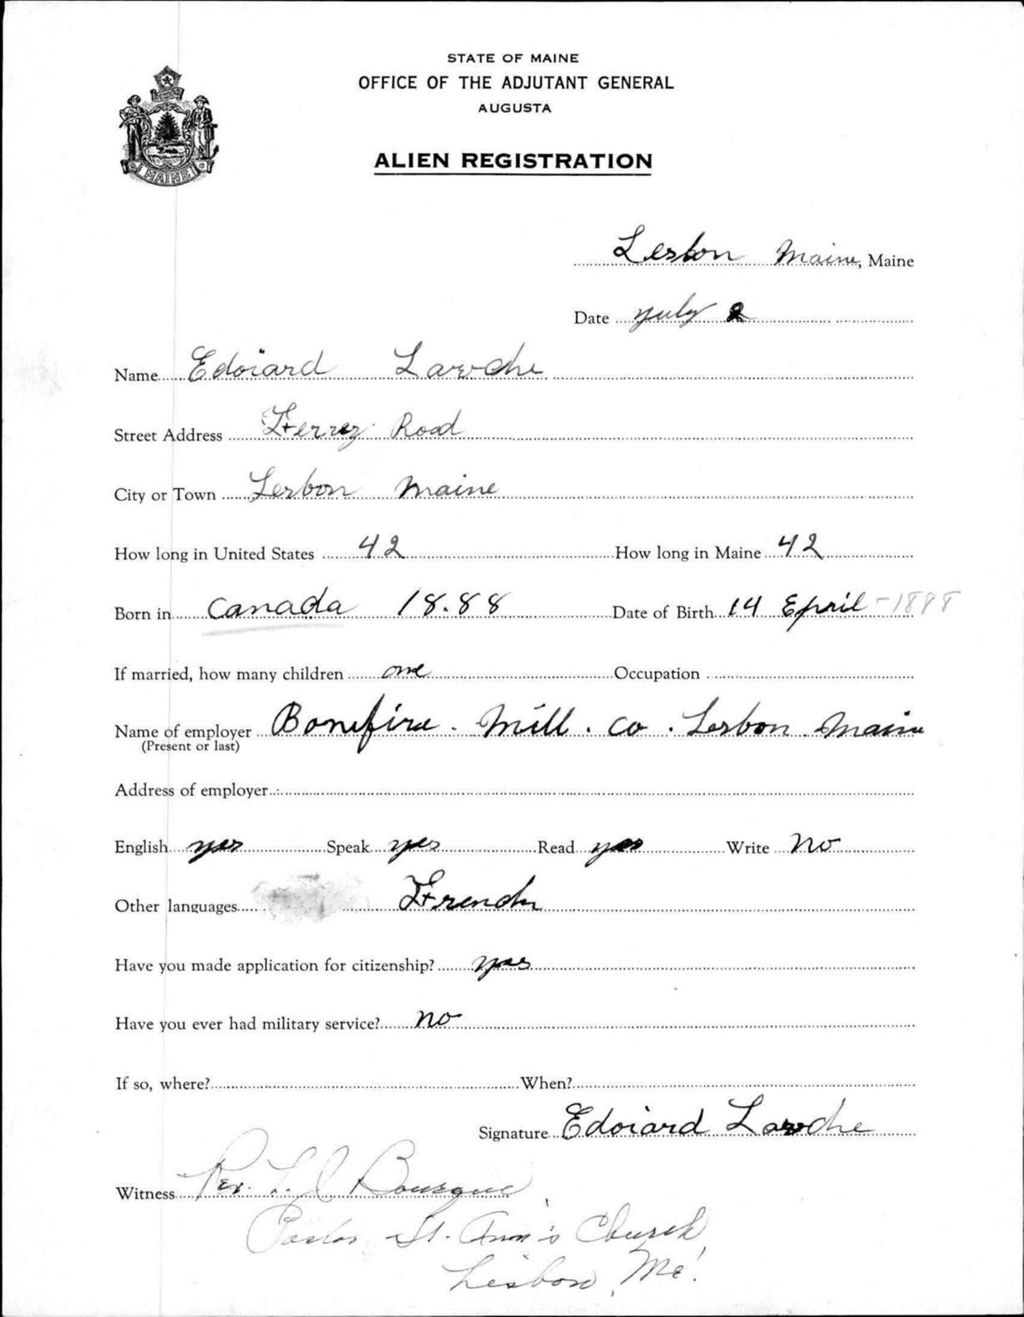 STATE OF MAINE
OFFICE OF THE ADJUTANT GENERAL
AUGUSTA
ALIEN REGISTRATION
MAINE
Lesbon Maine, Maine
Date July 2
Name Edoiard Laroche
Street Address Ferrey Road
City or Town Lesbon Maine
How long in United States 42 How long in Maine 42
Born in Canada 18.88 Date of Birth 14 Epril - 1888
If married, how many children one Occupation
Name of employer Bonefire . Mill . co . Lesbon Maine
(Present or last)
Address of employer
English yes Speak yes Read yes Write No
Other languages French
Have you made application for citizenship? yes
Have you ever had military service? no
If so, where? When?
Signature Edoiard Laroche
Witness Rev. L. J Bourque
Pastor St. Ann's Church,
Lisbon, Me.